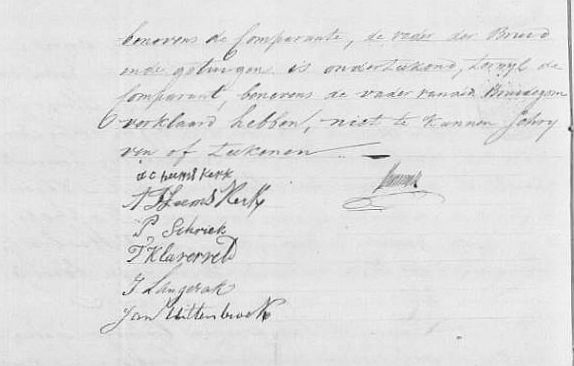 benevens de Comparante, de vader der Bruid
ende getuigen is onderteekend, terwyl de
Comparant, benevens de vader van den Bruidegom
verklaard hebben, niet te kunnen Schry
ven of teekenen
d c heemskerk
A Heemskerk
P Schriek
P Klaverveld
J Langerak
Jan Uittenbroek